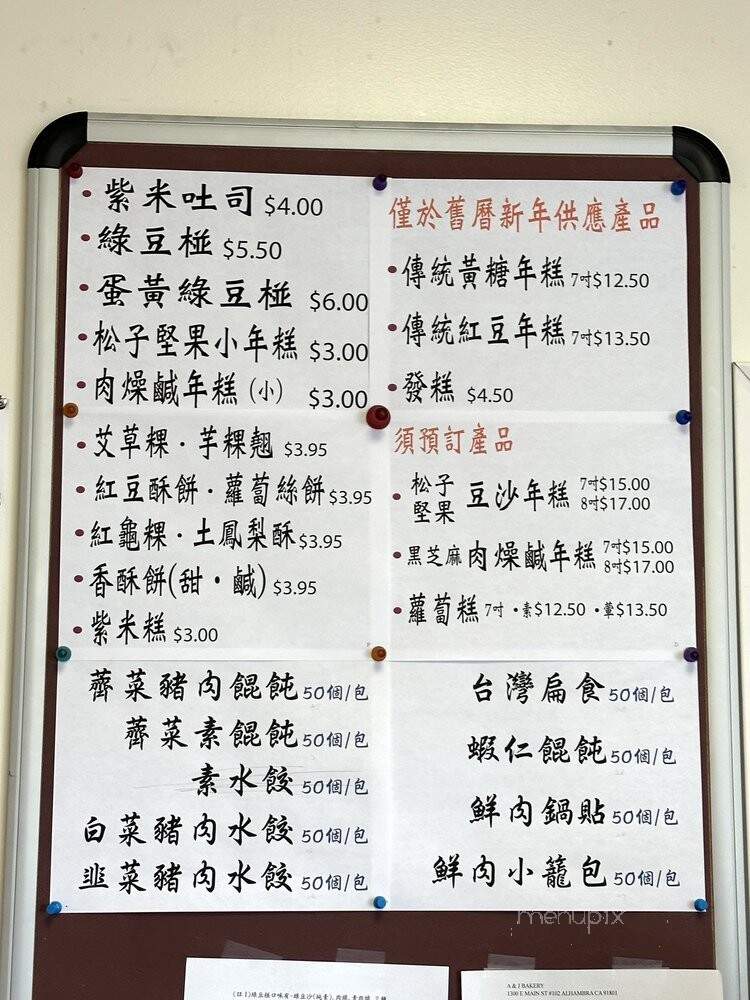 • 紫米吐司 $4.00
• 綠豆椪 $5.50
• 蛋黃綠豆椪 $6.00
• 松子堅果小年糕 $3.00
• 肉燥鹹年糕(小) $3.00
• 艾草粿·芋粿翹 $3.95
• 紅豆酥餅·蘿蔔絲餅 $3.95
• 紅龜粿·土鳳梨酥 $3.95
• 香酥餅(甜·鹹) $3.95
• 紫米糕 $3.00
僅於舊曆新年供應產品
• 傳統黃糖年糕 7吋$12.50
• 傳統紅豆年糕 7吋$13.50
• 發糕 $4.50
須預訂產品
• 松子堅果 豆沙年糕 7吋$15.00
8吋$17.00
• 黑芝麻肉燥鹹年糕 7吋$15.00
8吋$17.00
• 蘿蔔糕 7吋 •素$12.50 •葷$13.50
薺菜豬肉餛飩 50個/包
薺菜素餛飩 50個/包
素水餃 50個/包
白菜豬肉水餃 50個/包
韭菜豬肉水餃 50個/包
台灣扁食 50個/包
蝦仁餛飩 50個/包
鮮肉鍋貼 50個/包
鮮肉小籠包 50個/包
menupix
A & I BAKERY
1300 E MAIN ST #102 ALHAMBRA CA 91801